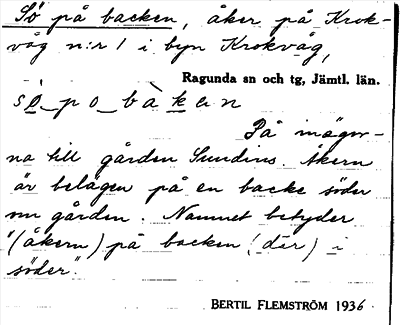 Sö på backen, åker på Krok-
våg n:r 1 i byn Krokvåg,
Ragunda sn och tg, Jämtl. län.
På inägor-
na till gården Sundins. Åkern
är belägen på en backe söder
om gården. Namnet betyder
"(åkern) på backen (där) i
söder".
BERTIL FLEMSTRÖM 1936